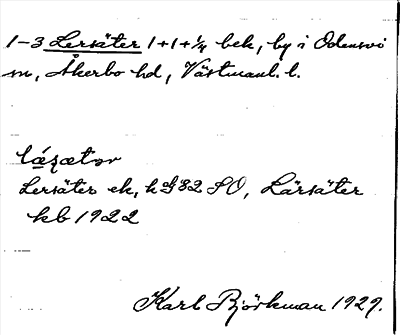 1-3 Lersäter 1+1+¼ bek, by i Odensvi
sn, Åkerbo hd, Västmanl. l.
Lersäter ek, SO, Lärsäter
kb 1922
Karl Björkman 1929.